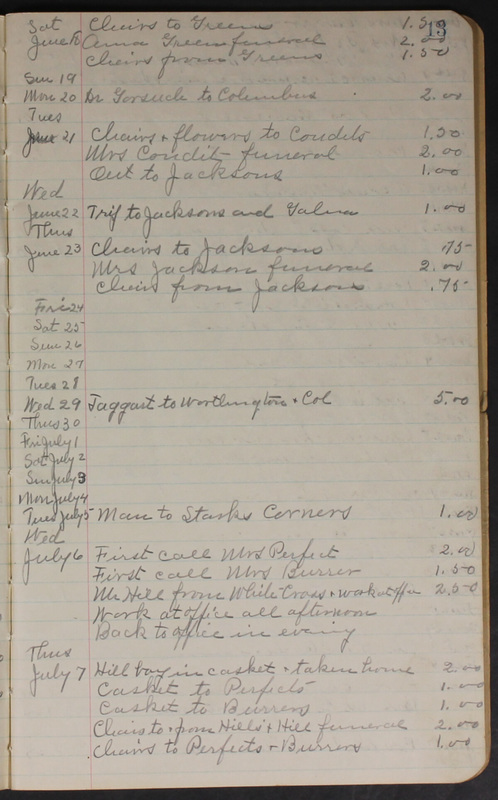 13
Sat Chairs to Greens 1.50
June 18 Anna Green funeral 2.00
Chairs from Greens 1.50
Sun 19
Mon 20 Dr Gorsuch to Columbus 2.00
Tues
June 21 Chairs & flowers to Condits 1.50
Mrs Condit funeral 2.00
Out to Jacksons 1.00
Wed
June 22 Trip to Jacksons and Galena 1.00
Thus
June 23 Chairs to Jacksons .75
Mrs Jackson funeral 2.00
Chairs from Jackson .75
Fri 24
Sat 25
Sun 26
Mon 27
Tues 28
Wed 29 Taggart to Worthington & Col 5.00
Thus 30
Fri July 1
Sat July 2
Sun July 3
Mon July 4
Tues July 5 Man to Starks Corners 1.00
Wed
July 6 First call Mrs Perfect 2.00
First call Mrs Burrer 1.50
Mr Hill from White Cross & work at office 2.50
Work at office all afternoon
Back to office in evening
Thus
July 7 Hill boy in casket & taken home 2.00
Casket to Perfects 1.00
Casket to Burrers 1.00
Chairs to & from Hills & Hill funeral 2.00
Chairs to Perfects & Burrers 1.00